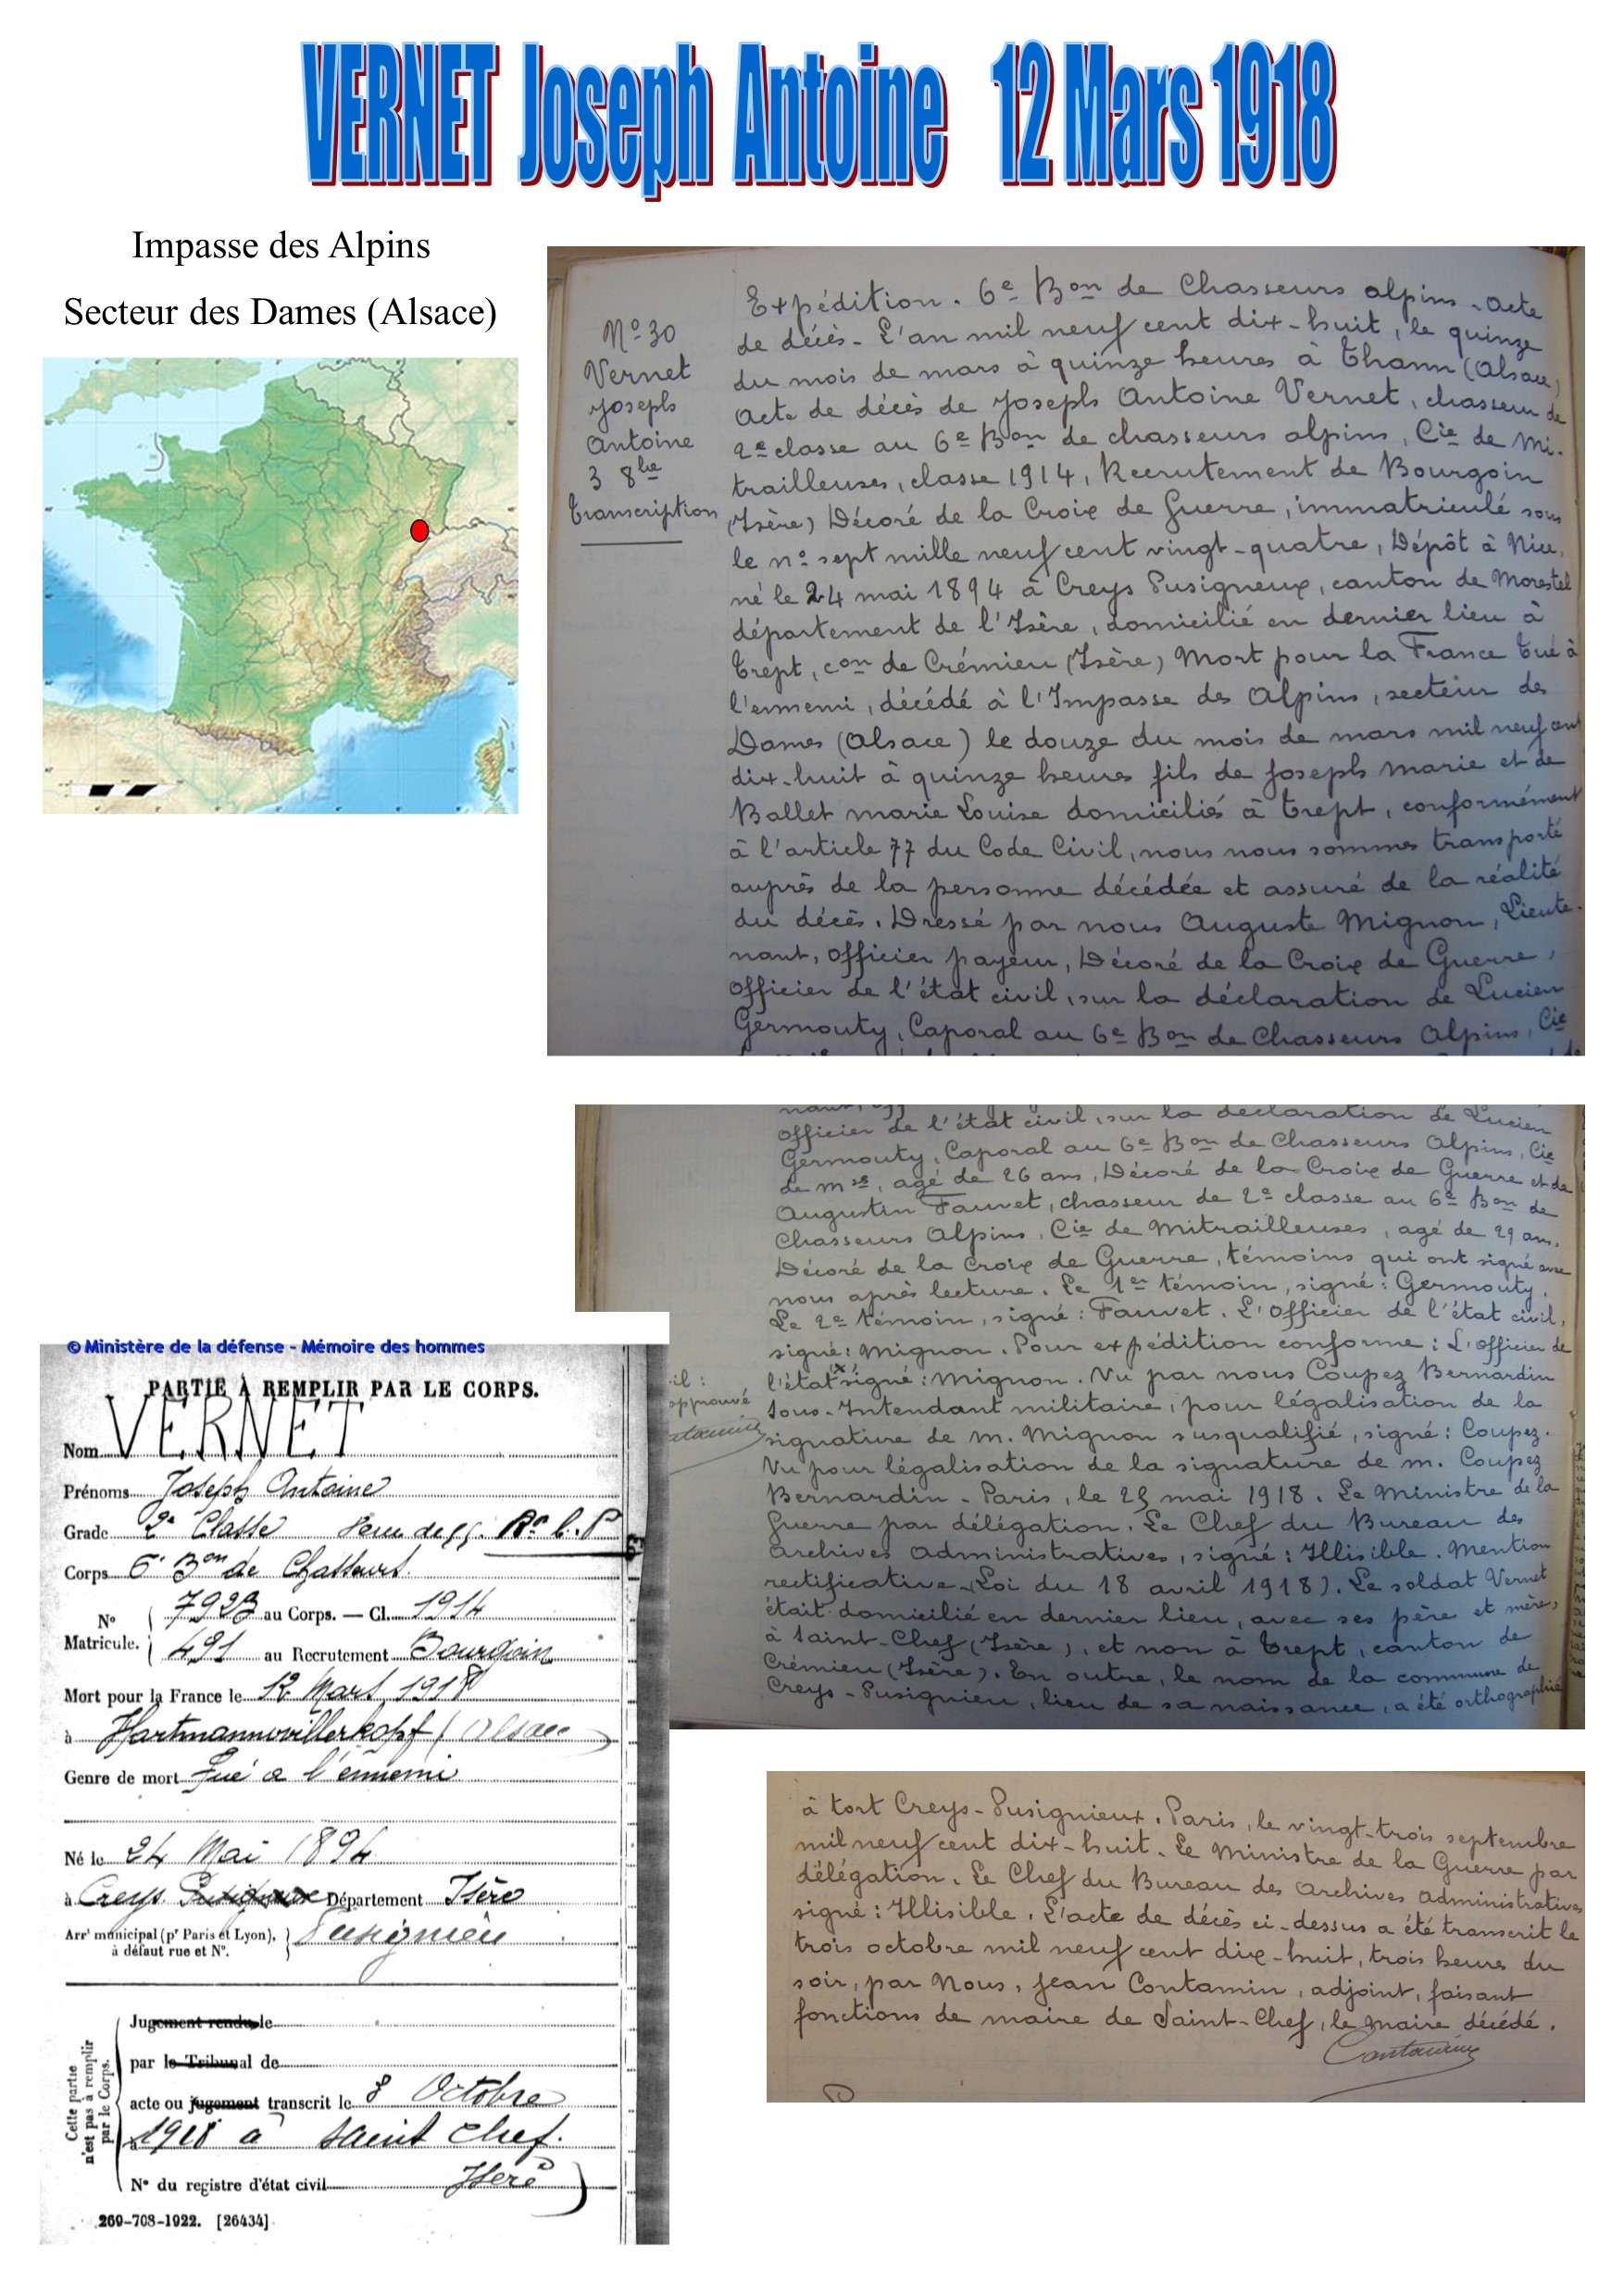 VERNET Joseph Antoine 12 Mars 1918
Impasse des Alpins
Secteur des Dames (Alsace)
N° 30
Vernet
Joseph
Antoine
3 8bre
transcription
Expédition. 6e Bon de Chasseurs alpins. Acte
de décès. L'an mil neuf cent dix-huit, le quinze
du mois de mars à quinze heures à Thann (Alsace)
Acte de décès de Joseph Antoine Vernet, chasseur de
2e classe au 6e Bon de chasseurs alpins, Cie de Mi-
trailleuses, classe 1914, Recrutement de Bourgoin
(Isère) Décoré de la Croix de Guerre, immatriculé sous
le n° sept mille neuf cent vingt-quatre, Dépôt à Nice,
né le 24 mai 1894 à Creys Pusigneux, canton de Morestel
département de l'Isère, domicilié en dernier lieu à
Trept, con de Crémieu (Isère) Mort pour la France Tué à
l'ennemi, décédé à l'Impasse des Alpins, secteur des
Dames (Alsace) le douze du mois de mars mil neuf cent
dix-huit à quinze heures fils de Joseph Marie et de
Ballet Marie Louise domiciliés à Trept, conformément
à l'article 77 du Code Civil, nous nous sommes transporté
auprès de la personne décédée et assuré de la réalité
du décès. Dressé par nous Auguste Mignon, Lieute-
nant, officier payeur, Décoré de la Croix de Guerre,
Officier de l'état civil, sur la déclaration de Lucien
Germouty, Caporal au 6e Bon de Chasseurs Alpins, Cie
Officier de l'état civil, sur la déclaration de Lucien
Germouty, Caporal au 6e Bon de Chasseurs Alpins, Cie
de Mses, agé de 26 ans, Décoré de la Croix de Guerre et de
Augustin Fauvet, chasseur de 2e classe au 6e Bon de
Chasseurs Alpins, Cie de Mitrailleuses, agé de 29 ans,
Décoré de la Croix de Guerre, témoins qui ont signé avec
nous après lecture. Le 1er témoin, signé: Germouty.
Le 2e témoin, signé: Fauvet. L'Officier de l'état civil,
signé: Mignon. Pour expédition conforme: L'officier de
l'état signé: Mignon. Vu par nous Coupez Bernardin
Sous-Intendant militaire, pour légalisation de la
signature de M. Mignon susqualifié, signé: Coupez.
Vu pour légalisation de la signature de M. Coupez
Bernardin - Paris, le 25 mai 1918. Le Ministre de la
Guerre par délégation. Le Chef du Bureau des
Archives Administratives, signé: Illisible. Mention
rectificative (Loi du 18 avril 1918). Le soldat Vernet
était domicilié en dernier lieu, avec ses père et mère,
à Saint-Chef (Isère), et non à Trept, canton de
Crémieu (Isère). En outre, le nom de la commune de
Creys-Pusignieu, lieu de sa naissance, a été orthographié
il:
approuvé
à tort Creys-Pusignieux. Paris, le vingt-trois septembre
mil neuf cent dix-huit. Le Ministre de la Guerre par
délégation. Le Chef du Bureau des Archives Administratives
signé: Illisible. L'acte de décès ci-dessus a été transcrit le
trois octobre mil neuf cent dix-huit, trois heures du
soir, par Nous, Jean Contamin, adjoint, faisant
fonctions de maire de Saint-Chef, le maire décédé.
Contamin
© Ministère de la défense - Mémoire des hommes
PARTIE À REMPLIR PAR LE CORPS.
Nom VERNET
Prénoms Joseph Antoine
Grade 2e Classe
Corps 6e Bon de Chasseurs
N° Matricule. 7923 au Corps. — Cl. 1914
491 au Recrutement Bourgoin
Mort pour la France le 12 Mars 1918
à Hartmannswillerkopf (Alsace)
Genre de mort Tué à l'ennemi
Né le 24 Mai 1894
à Creys Pusigneux Département Isère
Arrt municipal (pr Paris et Lyon), à défaut rue et N°. Pusignieu
Cette partie n'est pas à remplir par le Corps.
Jugement rendu le
par le Tribunal de
acte ou jugement transcrit le 3 Octobre
1918 à Saint Chef.
N° du registre d'état civil Isère
269-708-1922. [26434]